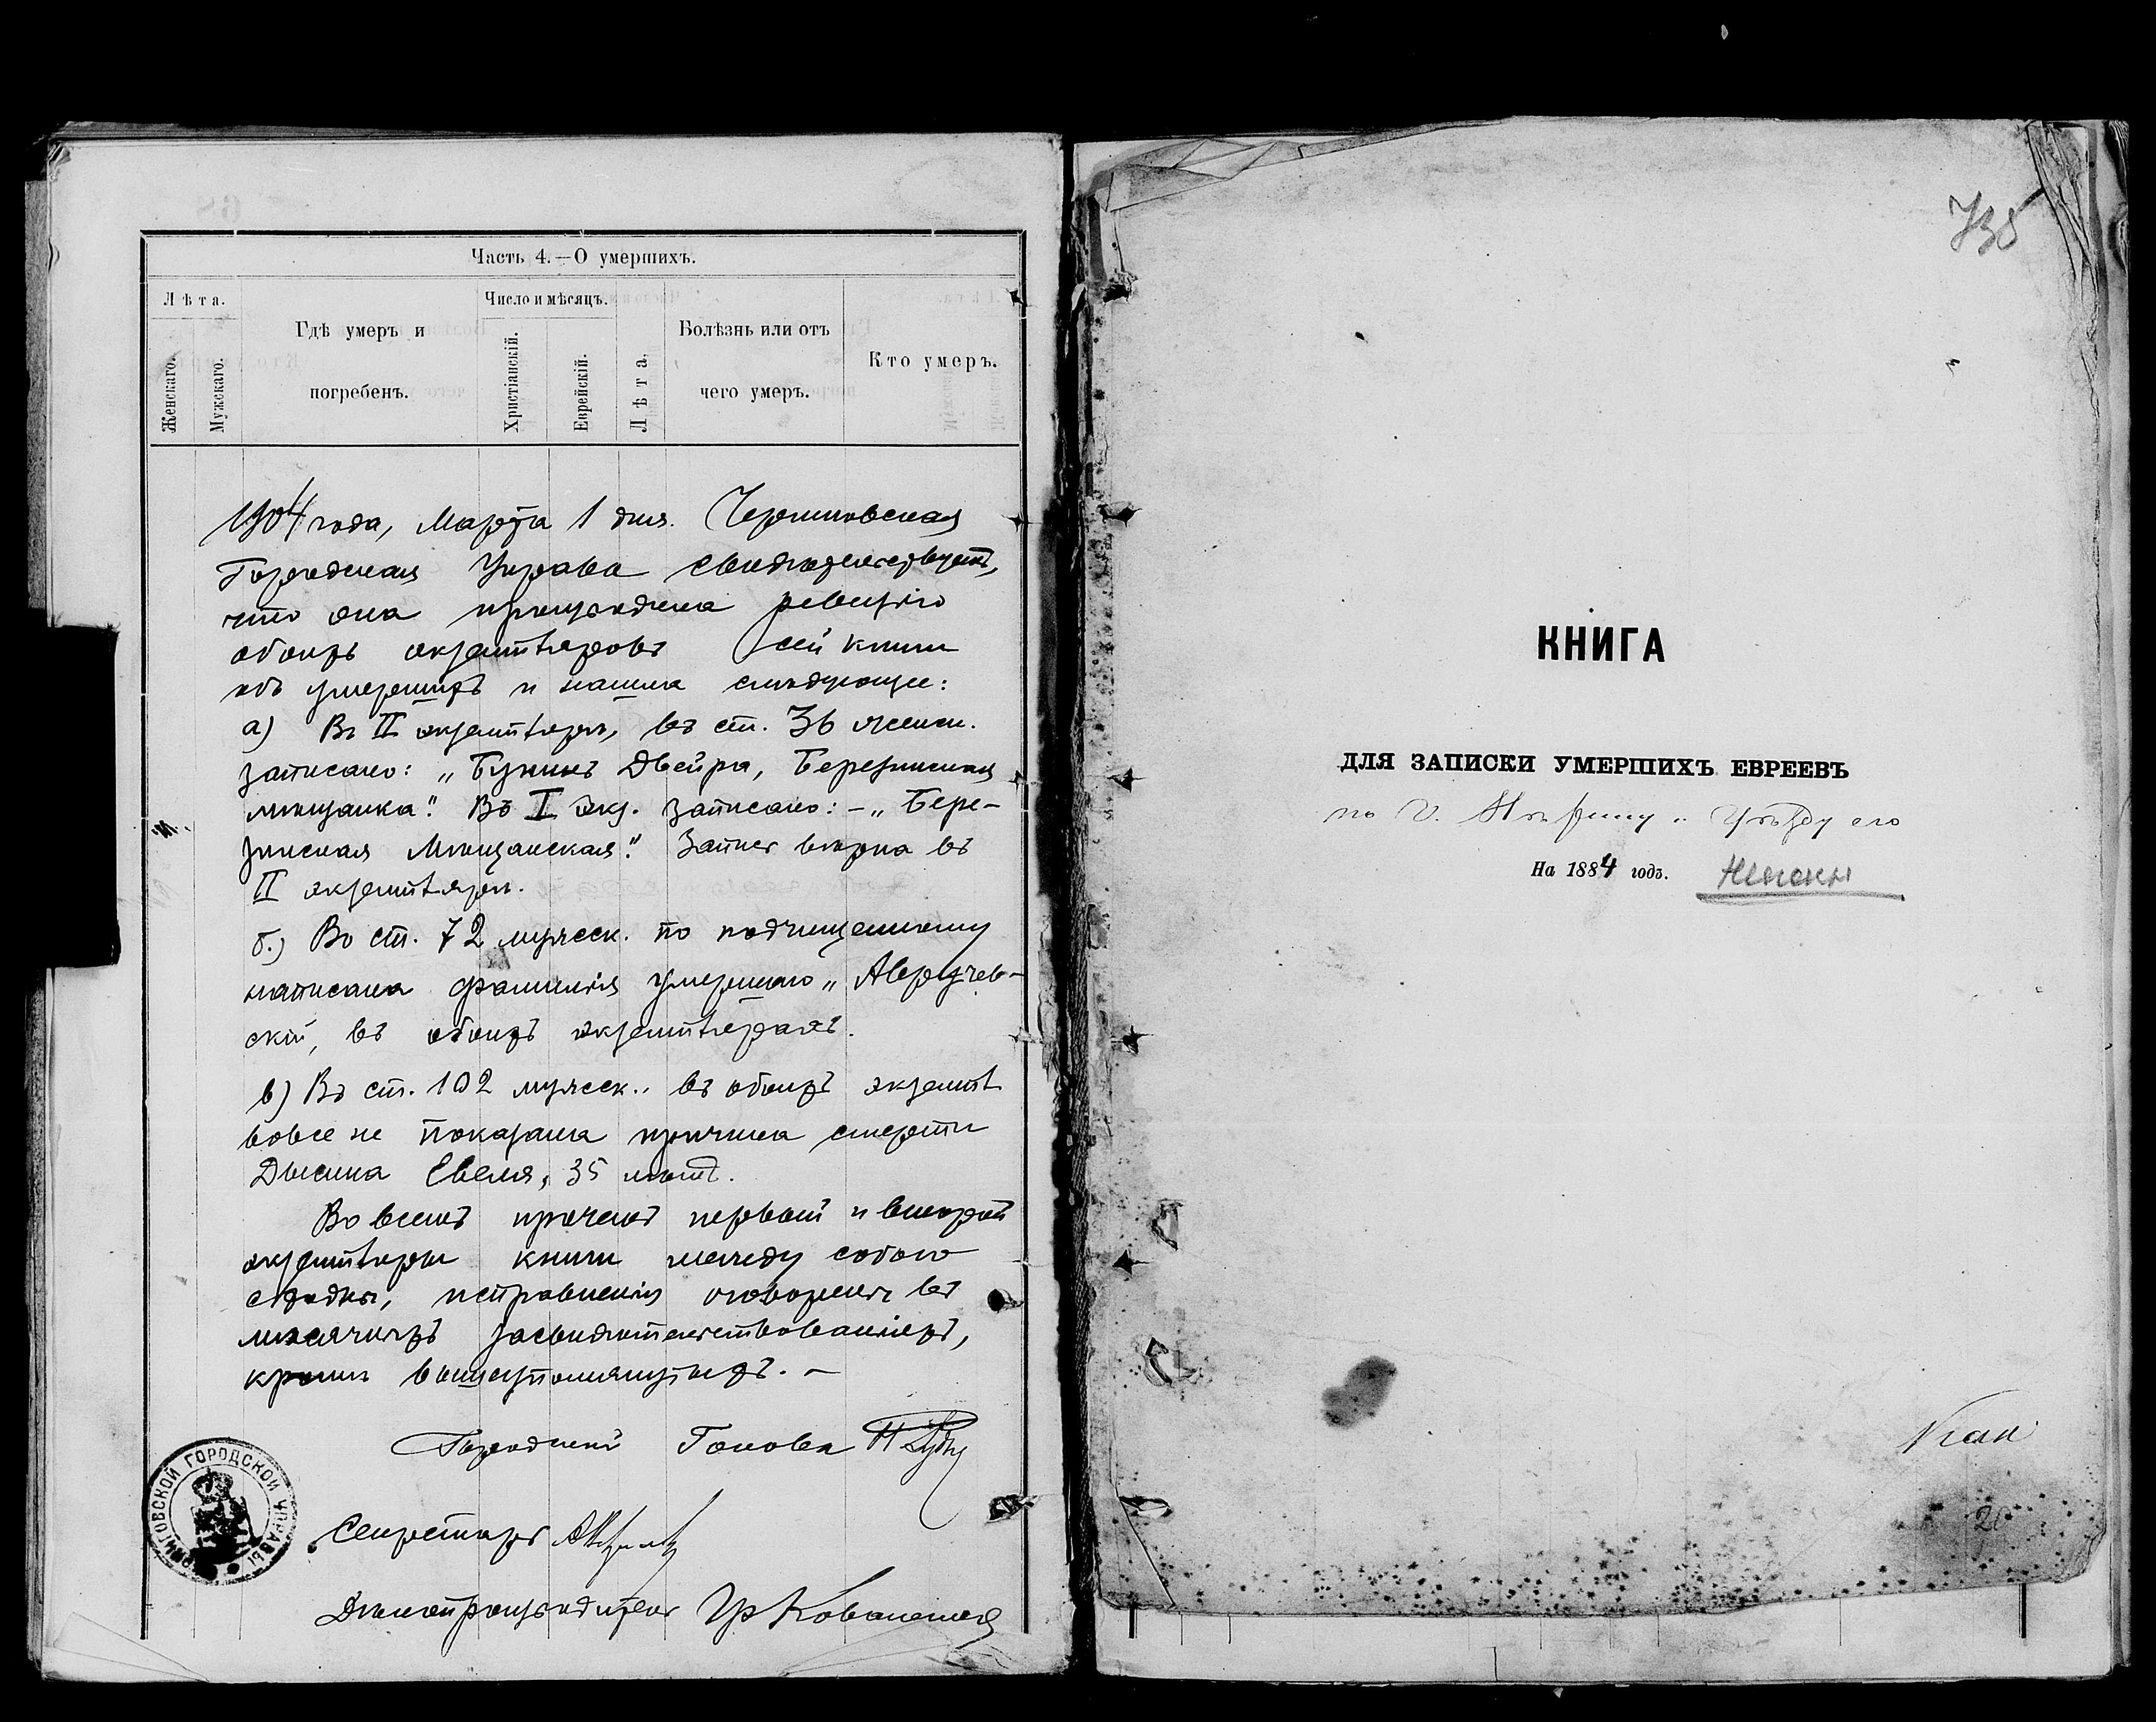 Часть 4.—О умершихъ.
Лѣта.
Женскаго.
Мужскаго.
Гдѣ умеръ и
погребенъ.
Число и мѣсяцъ.
Христіанскій.
Еврейскій.
Лѣта.
Болѣзнь или отъ
чего умеръ.
Кто умеръ.
1904 года, Марта 1 дня. Черниговская
Городская Управа свидѣтельствуетъ,
что она производила ревизію
обоихъ экземпляровъ сей книги
объ умершихъ и нашла слѣдующее:
а) Въ II экземплярѣ, въ ст. 36 женск.
записано: „Бунинъ Двейра, Березинская
мѣщанка". Въ I экз. записано: – „Бере-
зинская Мѣщанская". Запись вѣрна въ
II экземплярѣ.
б.) Во ст. 72 мужеск. по подчищенному
написана фамилія умершаго „Авручев-
скій, въ обоихъ экземплярахъ.
в) Въ ст. 102 мужеск., въ обоихъ экземпл.
вовсе не показана причина смерти
Дысина Евеля, 35 лѣтъ.
Во всемъ прочемъ первый и второй
экземпляры книги между собою
сходны, исправленія оговорены въ
мѣсячныхъ засвидѣтельствованіяхъ,
кромѣ вышеупомянутыхъ. –
Городской Голова
Секретарь
Дѣлопроизводитель
ЧЕРНИГОВСКОЙ ГОРОДСКОЙ УПРАВЫ
735
КНИГА
ДЛЯ ЗАПИСКИ УМЕРШИХЪ ЕВРЕЕВЪ
по г. Нѣжину и Уѣзду его
На 1884 годъ.